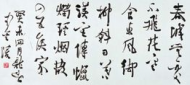 春城無處
不飛花寒
食東風御
柳斜日暮
漢宮傳蠟
燭輕煙散
入五侯家
癸未四月